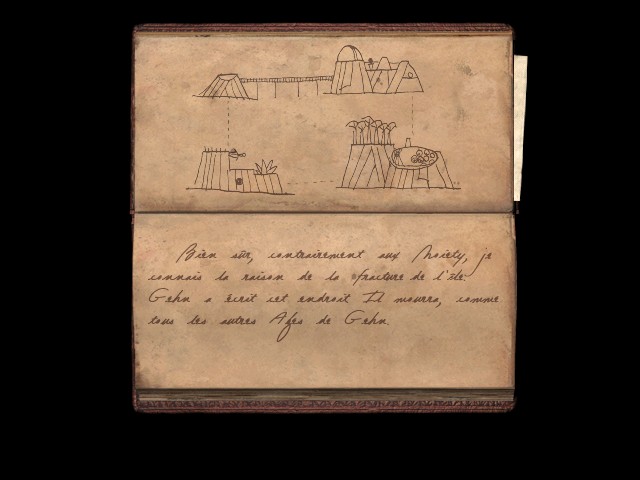 Bien sûr, contrairement aux Moiety, je
connais la raison de la fracture de l'île.
Gehn a écrit cet endroit Il mourra, comme
tous les autres Âges de Gehn.